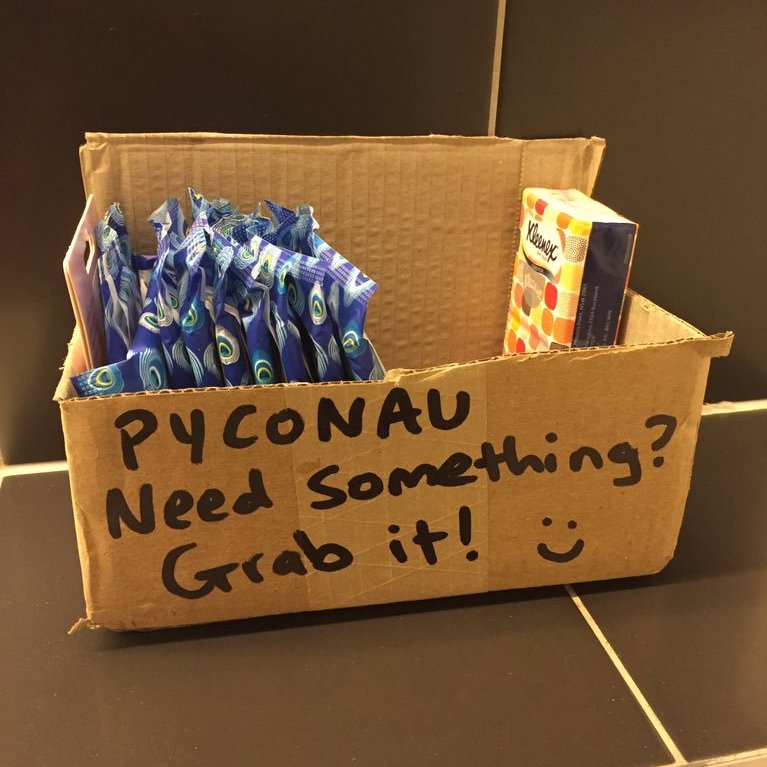 Kleenex
PYCONAU
Need Something?
Grab it!